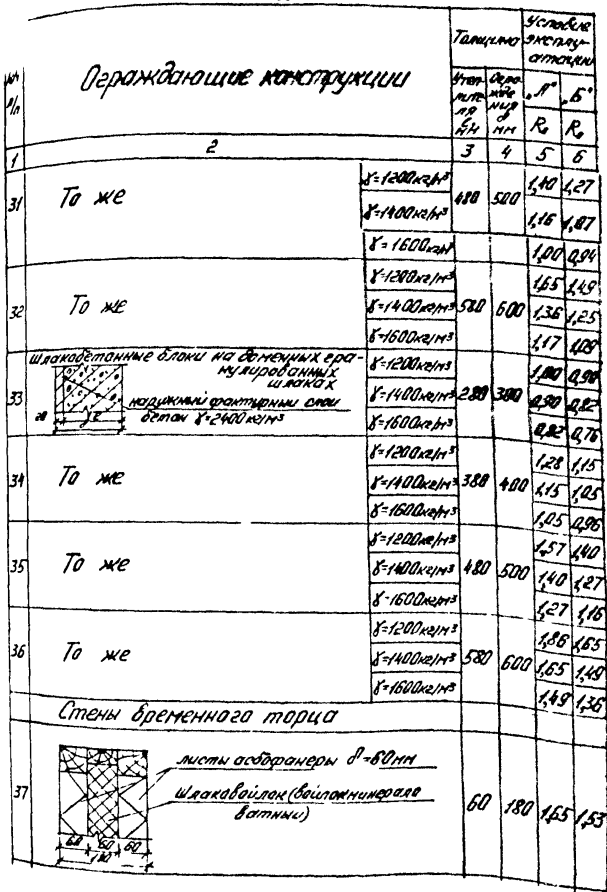 Ограждающие конструкции
Толщина
Условие эксплуатации
№№ п/п
Утеплителя мм
Ограждения δ мм
„А" „Б"
R₀ R₀
1 2 3 4 5 6
31 То же γ=1200кг/м³ 480 500 1,40 1,27
γ=1400кг/м³ 1,16 1,07
γ=1600кг/м³ 1,00 0,94
32 То же γ=1200кг/м³ 580 600 1,65 1,49
γ=1400кг/м³ 1,36 1,25
γ=1600кг/м³ 1,17 1,09
шлакобетонные блоки на доменных гра-
нулированных
шлаках
33 наружный фактурный слой
бетон γ=2400кг/м³
20
γ=1200кг/м³ 280 300 1,00 0,90
γ=1400кг/м³ 0,90 0,82
γ=1600кг/м³ 0,82 0,76
34 То же γ=1200кг/м³ 380 400 1,28 1,15
γ=1400кг/м³ 1,15 1,05
γ=1600кг/м³ 1,05 0,96
35 То же γ=1200кг/м³ 480 500 1,57 1,40
γ=1400кг/м³ 1,40 1,27
γ=1600кг/м³ 1,27 1,16
36 То же γ=1200кг/м³ 580 600 1,86 1,65
γ=1400кг/м³ 1,65 1,49
γ=1600кг/м³ 1,49 1,36
Стены временного торца
37 листы асбофанеры δ=60мм
шлаковойлок (войлок минерало
ватный)
60 180 1,65 1,53
60 60 60
180